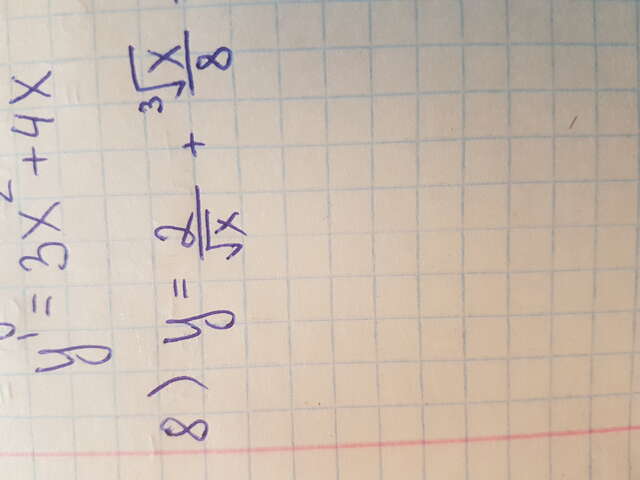 y' = 3x² + 4x
8) y = 2/√x + ∛x/8